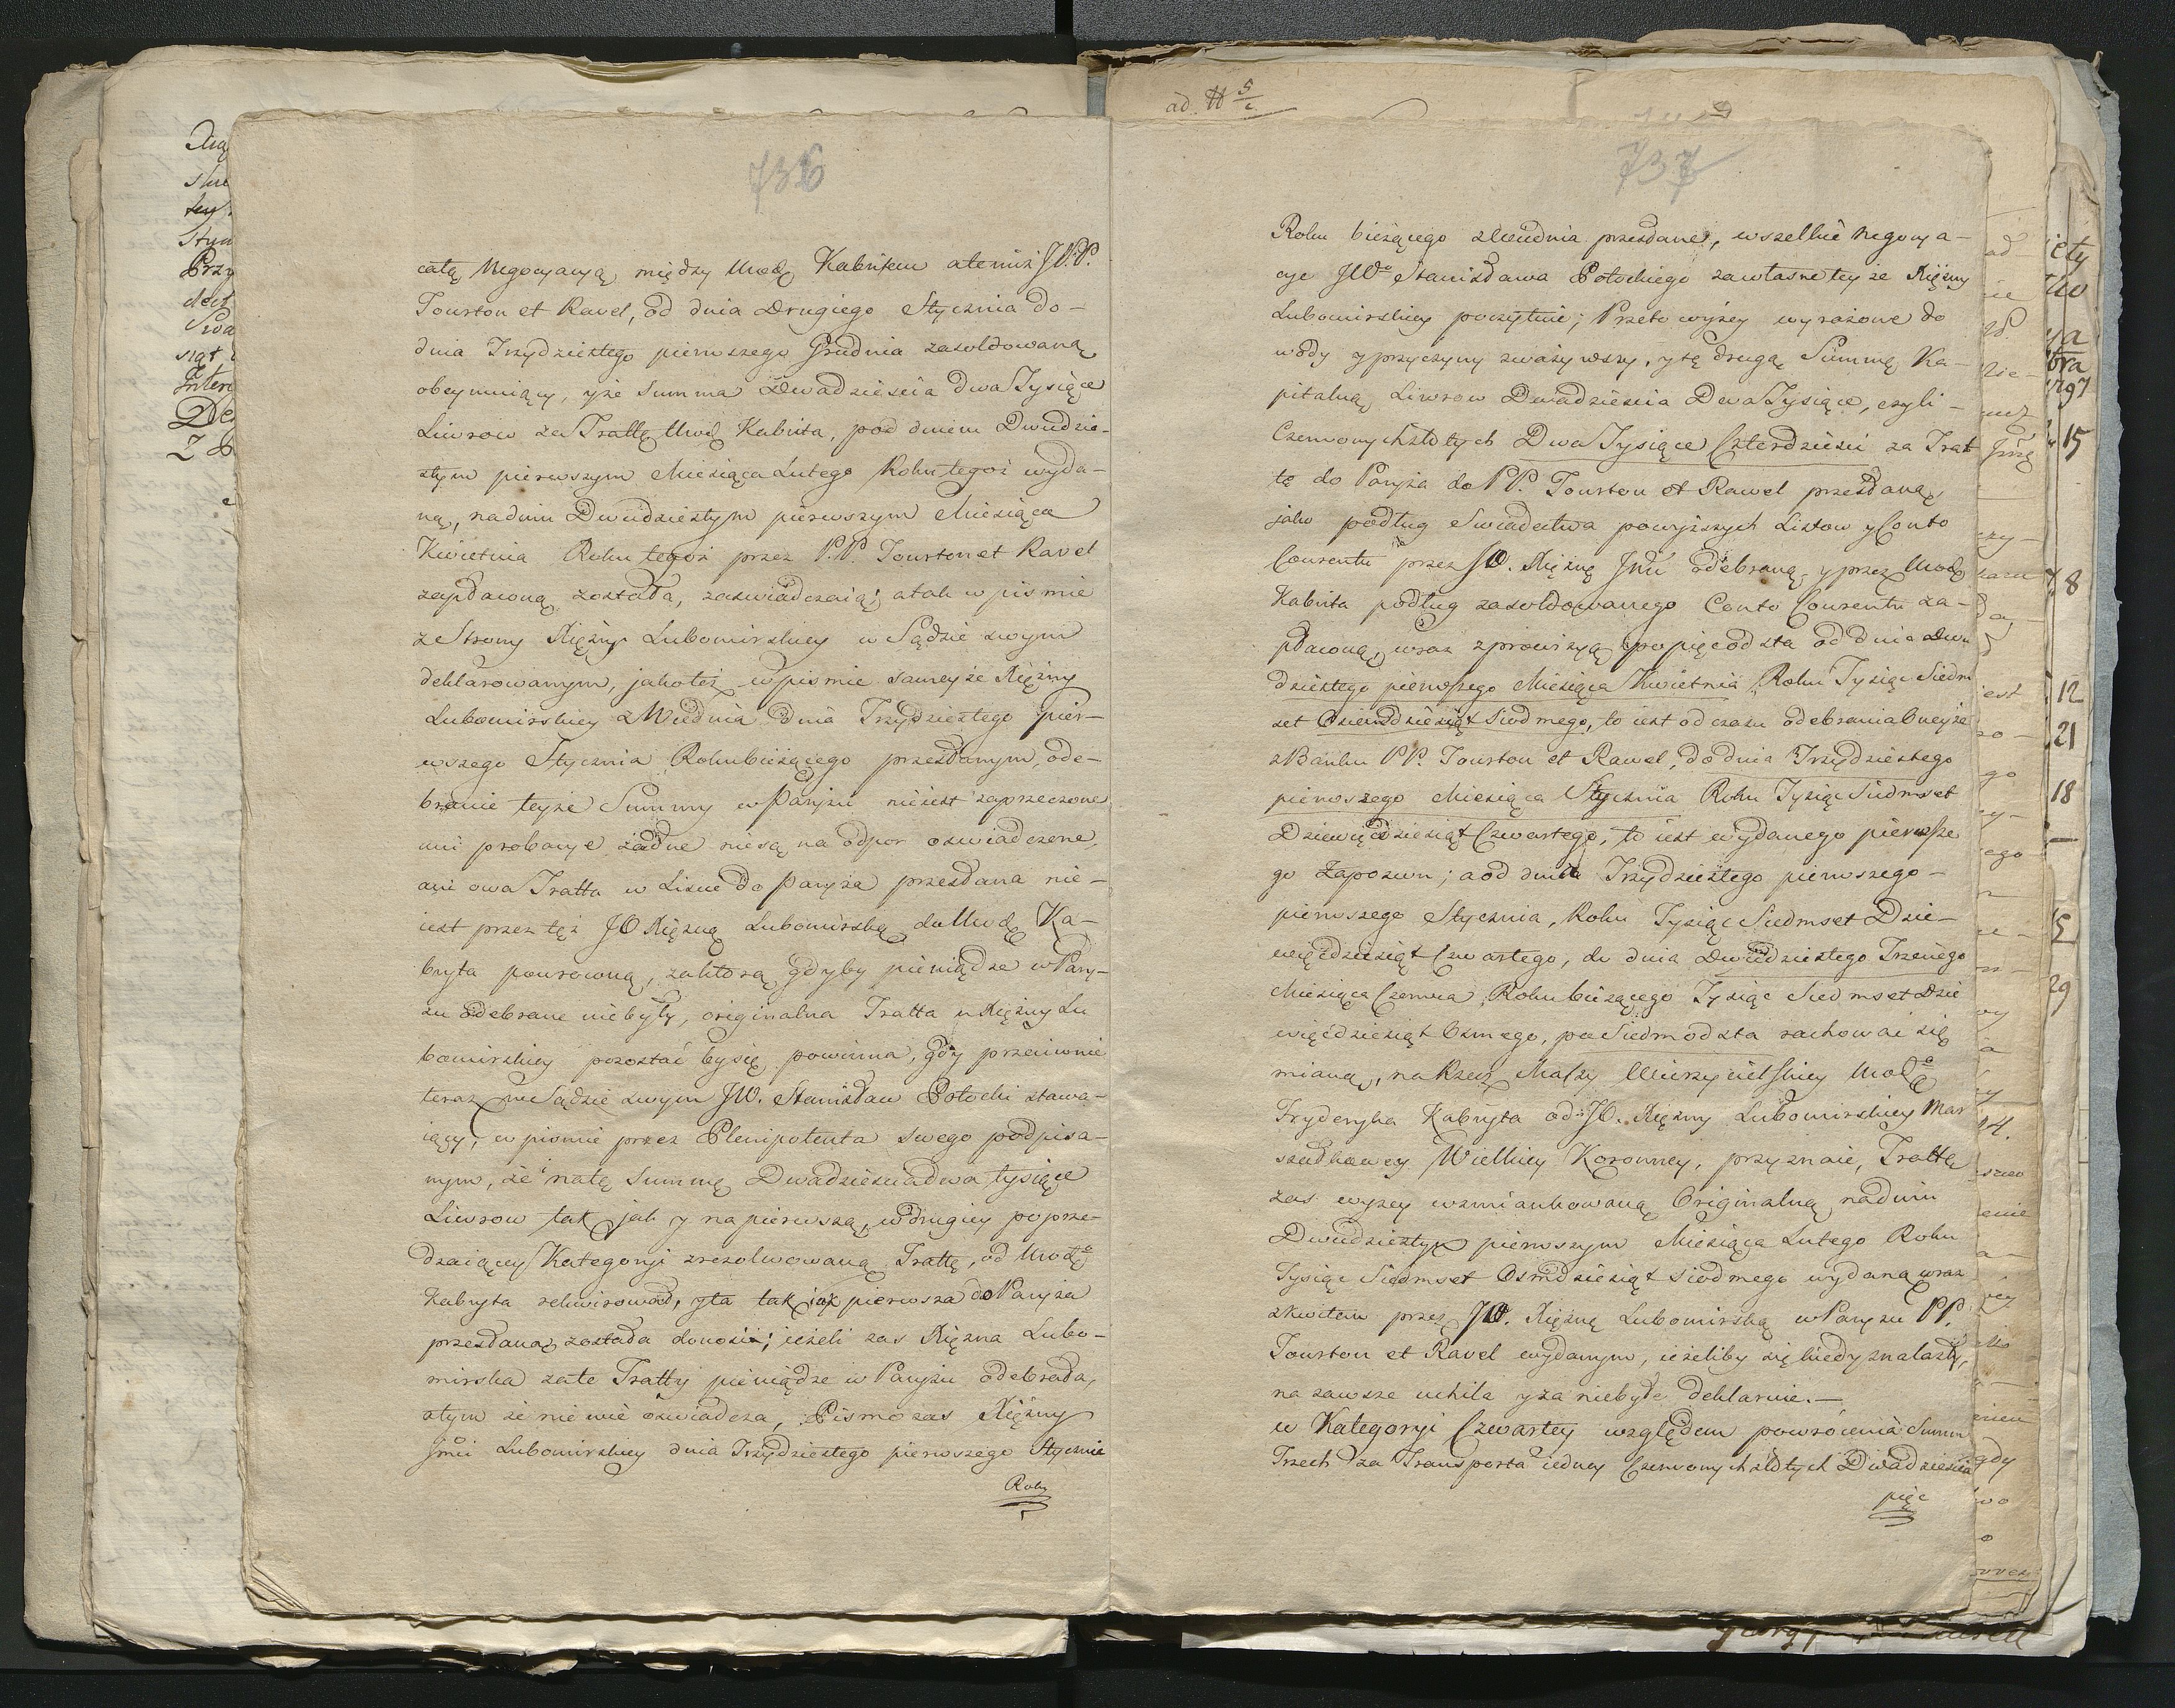 736
całą Negocyacyą między Urodz Kabritem atemiż J.P.P.
Tourton et Ravel, od dnia Drugiego Stycznia do-
dnia Trzydziestego pierwszego Grudnia zasoldowaną
obeymuiący, yże Summa Dwadzieścia dwa Tysiące
Liwrow za Trattę Urodz Kabrita, pod dniem Dwudzie-
stym pierwszym Miesiąca Lutego Roku tegoż wyda-
ną, na dniu Dwudziestym pierwszym Miesiąca
Kwietnia Roku tegoż przez P.P. Tourton et Ravel
zapłaconą została, zaświadczaią; atak w pismie
ze Strony Xiężny Lubomirskiey w Sądzie swym
deklarowanym, jakoteż w pismie sameyże Xiężny
Lubomirskiey z Wiednia dnia Trzydziestego pier-
wszego Stycznia Roku bieżącego przesłanym, ode-
branie teyże Summy w Paryżu nieiest zaprzeczone
ani probacye żadne niesą na odpor oswiadczone,
ani owa Tratta w Lisie do Paryża przesłana nie-
iest przez tęż JO Xiężnę Lubomirską do Urodz Ka-
bryta powroconą, zaktorą gdyby pieniądze w Pary-
zu odebrane niebyły, originalna Tratta u Xiężny Lu
bomirskiey pozostać bysię powinna, gdy przeciwnie
teraz w Sądzie swym JW. Stanisław Potocki stawa-
iący, w pismie przez Plenipotenta swego podpisa-
nym, że natę Summę Dwadzieścia dwa tysiące
Liwrow tak jak y na pierwszą, w drugiey poprze-
dzaiącey Kategoryi zrezolwowaną Trattę, od Urodzo
Kabryta rekwirował, yta tak iak pierwsza do Paryża
przesłana została donosi; ieżeli zas Xiężna Lubo-
mirska zate Tratty pieniądze w Paryżu odebrała,
otym że nie wie oswiadcza, Pismo zas Xiężny
Jmci Lubomirskiey dnia Trzydziestego pierwszego Stycznia
Roku
ad. N 5/c
737
Roku bieżącego z Wiednia przesłane, wszelkie Negocya-
cye JWo Stanisława Potockiego zawłasne teyże Xiężny
Lubomirskiey poczytuie; Przeto wyżey wyrażone do
wody y przyczyny zważywszy, y tę drugą Summę Ka-
pitalną Liwrow Dwadzieścia Dwa Tysiące, czyli-
Czerwonych złotych Dwa Tysiące Czterdzieści za Trat
tę do Paryża do PP. Tourton et Rawel przesłaną,
jako podług Swiadectwa powyższych Listow y Conto
Courentu przez JO. Xiężnę Jmci odebraną, y przez Urodz
Kabrita podług zasoldowanego Conto Courentu za-
płaconą, wraz z prowizyą po pięc od sta od dnia Dwu
dziestego pierwszego Miesiąca Kwietnia Roku Tysiąc Siedm
set Osiemdziesiąt Siodmego, to iest od czasu odebrania oneyże
z Banku PP. Tourton et Rawel, do dnia Trzydziestego
pierwszego Miesiąca Stycznia Roku Tysiąc Siedmset
Dziewięćdziesiąt Czwartego, to iest wydanego pierwsze
go Zapozwu; a od dnia Trzydziestego pierwszego-
pierwszego Stycznia, Roku Tysiąc Siedmset Dzie-
więćdziesiąt Czwartego, do dnia Dwudziestego Trzeciego
Miesiąca Czerwca Roku bieżącego Tysiąc Siedmset Dzie
więćdziesiąt Osmego, po Siedm od sta rachować się
mianą, na Rzecz Massy Wierzycielskiey Urodzo
Fryderyka Kabryta od JO. Xiężny Lubomirskiey Mar
szałkowey Wielkiey Koronney, przyznaie, Trattę
zas wyżey wzmiankowaną Originalną na dniu
Dwudziestym pierwszym Miesiąca Lutego Roku
Tysiąc Siedmset Osmdziesiąt siodmego wydaną wraz
z kwitem przez JO. Xiężnę Lubomirską w Paryżu PP.
Tourton et Ravel wydanym, ieżeliby się kiedy znalazły,
na zawsze uchila y za niebyłe deklaruie.-
w Kategoryi Czwartey względem powrócenia Summ
Trzech za Transporta iedney Czerwonych złotych Dwadzieścia
pięc